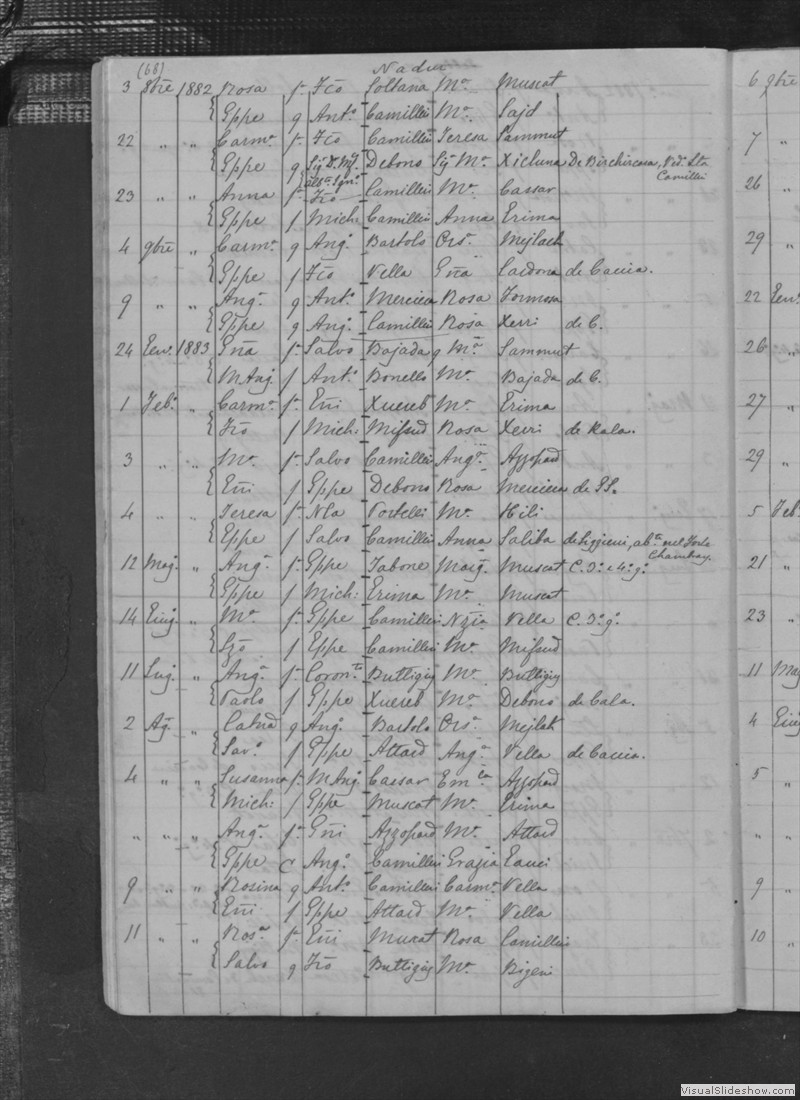 (68) Nadur
3 8bre 1882 Rosa f. Fco Soltana Ma. Muscat
Gppe g Anto. Camilleri Ma. Sajd
22 " " Carma. f. Fco Camilleri Teresa Sammut
Gppe g Debono Sig. Ma. Xicluna De Birchircara, Ved. Sta
Camilleri
23 " " Anna f. Fco Camilleri Ma. Cassar
Gppe f Mich: Camilleri Anna Grima
4 9bre " Carma. g Ango. Bartolo Orsa. Mejlach
Gppe f Fco Vella Gña Cardona de Caccia.
9 " " Anga. g Anto. Mercieca Rosa Formosa
Gppe g Ango. Camilleri Rosa Xerri de C.
24 Gen. 1883 Gña f. Salvo Bajada g Ma. Sammut
MAng. f Anto. Bonello Ma. Bajada de C.
1 Feb. " Carma. f. Gñi Xuereb Ma. Grima
Fco f Mich: Mifsud Rosa Xerri de Kala.
3 " " Ma. f. Salvo Camilleri Anga. Azzopard
Gñi f Gppe Debono Rosa Mercieca de SS.
4 " " Teresa f. Nla Portelli Ma. Hili
Gppe f Salvo Camilleri Anna Saliba de Liggieni, abte. nel Forte
Chambray.
12 Mag. " Anga. f. Gppe Tabone Marg. Muscat C. 3o. e 4o. go.
Gppe f Mich: Grima Ma. Muscat
14 Giug. " Ma. f. Gppe Camilleri Nzia Vella C. 3o. go.
f Gppe Camilleri Ma. Mifsud
11 Lug. " Anga. f. Coronto Buttigieg Ma. Buttigieg
Paolo f Gppe Xuereb Ma. Debono de Cala.
2 Ag. " Catna g Ango. Bartolo Orsa. Mejlak
Savo. f Gppe Attard Anga. Vella de Caccia.
4 " " Susanna f. MAng. Cassar Emla Azzopard
Mich: f Gppe Muscat Ma. Grima
" " " Anga. f. Gñi Azzopard Ma. Attard
Gppe C Ango. Camilleri Grazia Gauci
9 " " Rosina g Anto. Camilleri Carma. Vella
Gñi f Gppe Attard Ma. Vella
11 " " Rosa. f. Gñi Muscat Rosa Camilleri
Salvo g Fco Buttigieg Ma. Bigeni
6 9bre
7 "
26 "
29 "
22 Gen.
26 "
27 "
29 "
5 Feb.
21 "
23 "
11 Mag
4 Giug
5 "
" "
9 "
10 "
VisualSlideshow.com